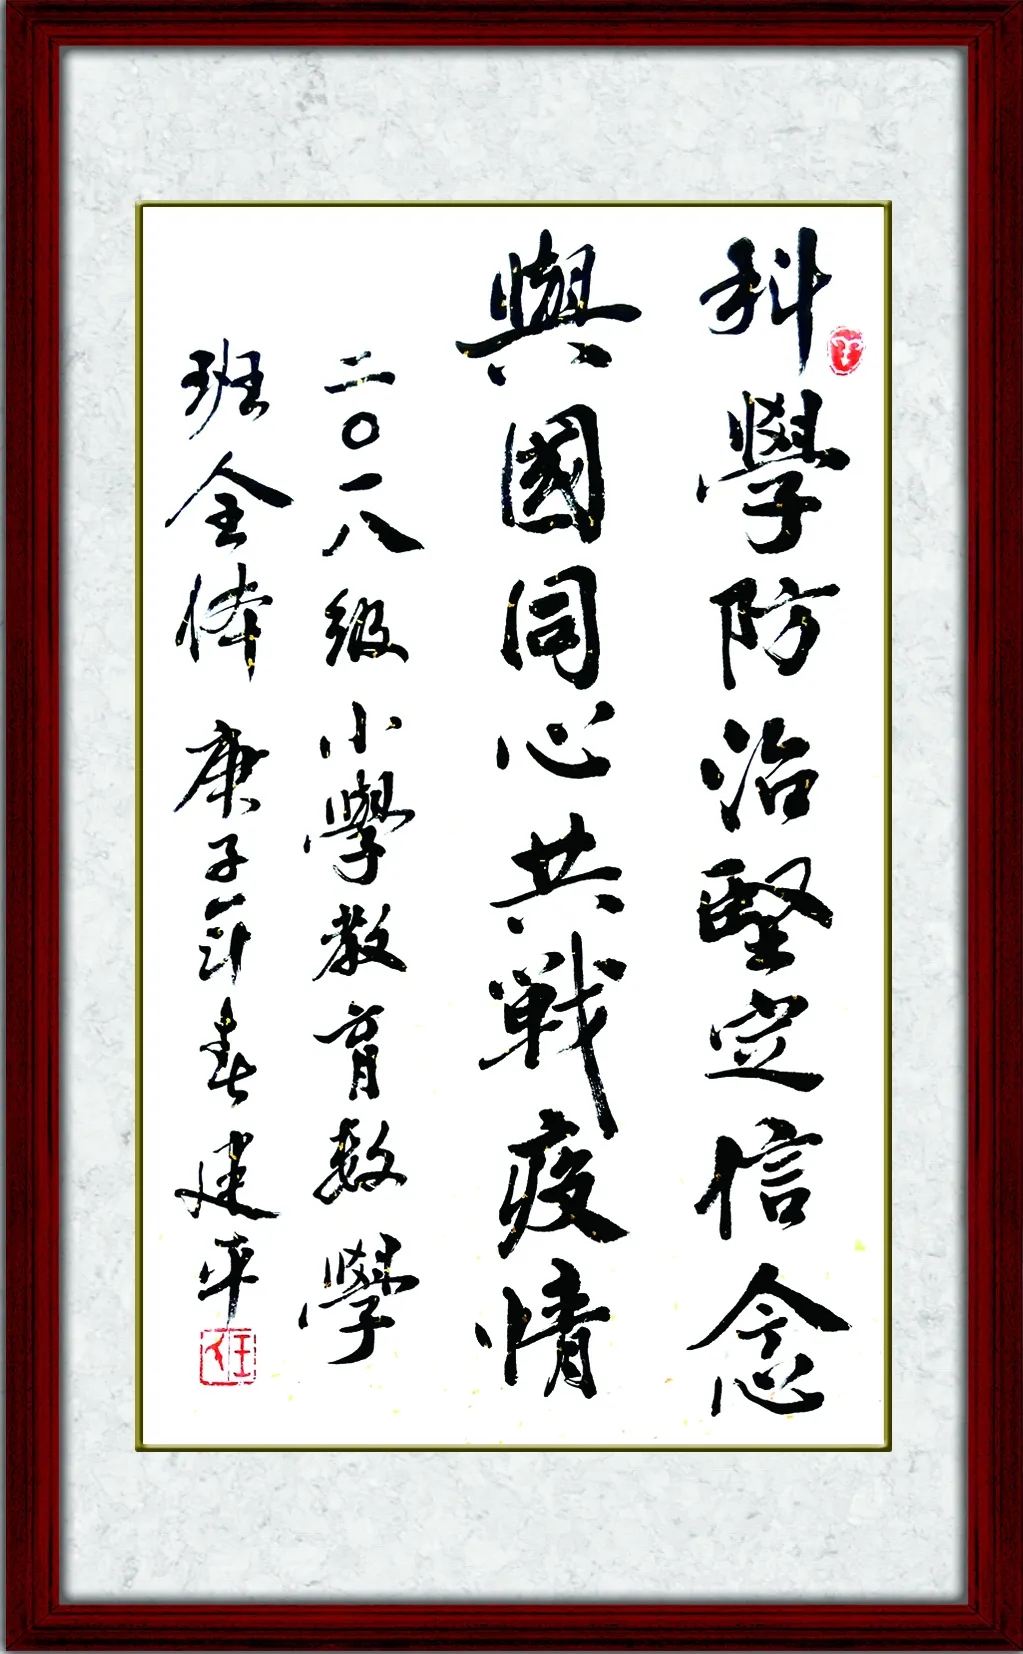 科學防治堅定信念
與國同心共戦疫情
二〇一八级小學教育数學
班全体 庚子年春建平